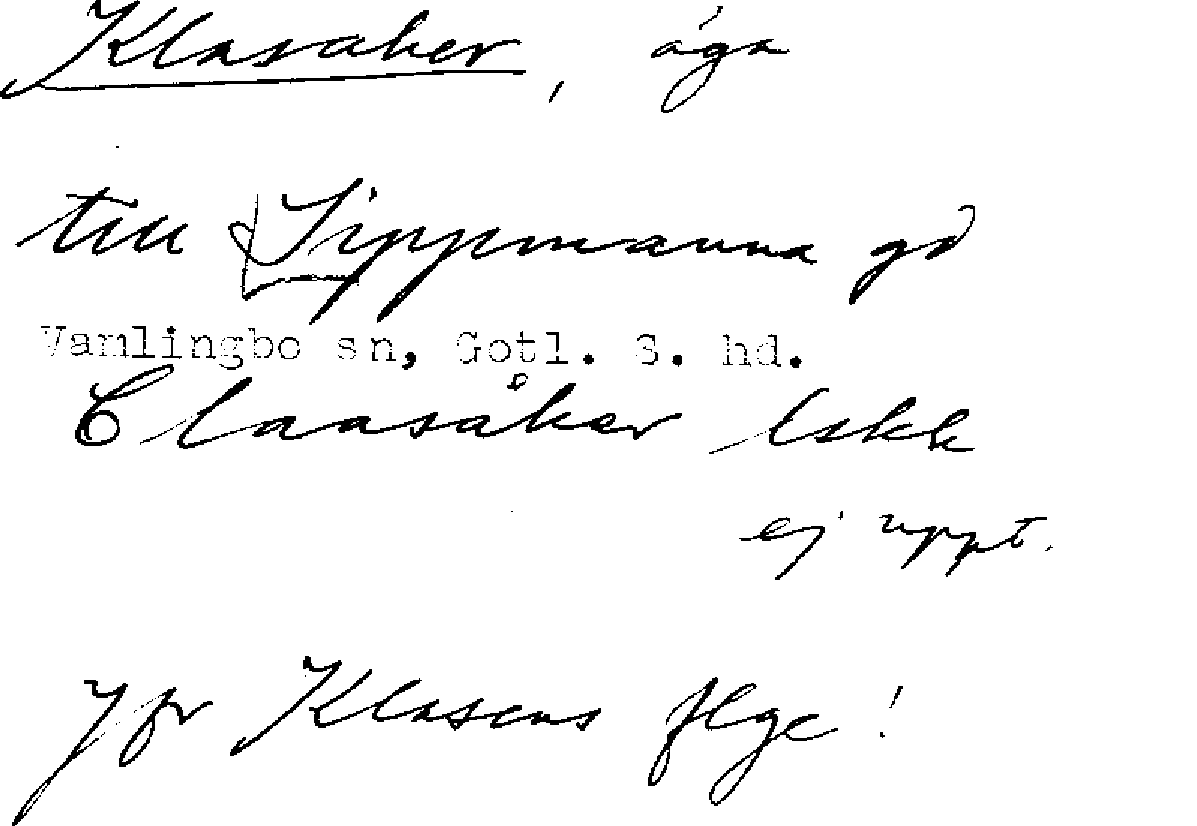 Klasaker, äga
till Sippmanna gd
Vamlingbo sn, Gotl. S. hd.
Claasåker lskk
ej uppt.
Jfr Klasens flge!